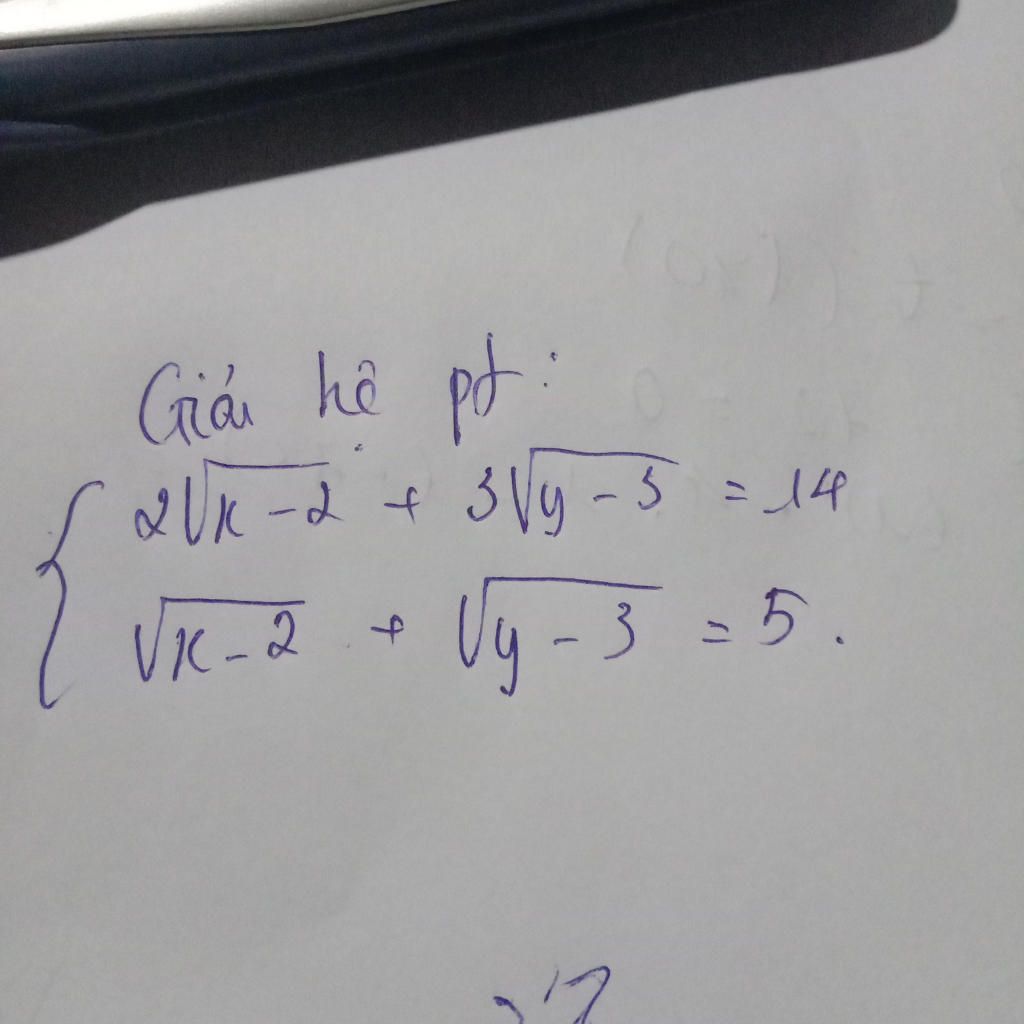 Giải hệ pt:
2√x-2 + 3√y-3 = 14
√x-2 + √y-3 = 5.